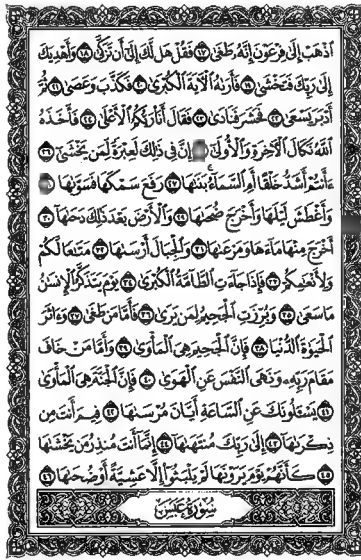 ٱذْهَبْ إِلَىٰ فِرْعَوْنَ إِنَّهُۥ طَغَىٰ ١٧ فَقُلْ هَل لَّكَ إِلَىٰٓ أَن تَزَكَّىٰ ١٨ وَأَهْدِيَكَ
إِلَىٰ رَبِّكَ فَتَخْشَىٰ ١٩ فَأَرَىٰهُ ٱلْـَٔايَةَ ٱلْكُبْرَىٰ ٢٠ فَكَذَّبَ وَعَصَىٰ ٢١ ثُمَّ
أَدْبَرَ يَسْعَىٰ ٢٢ فَحَشَرَ فَنَادَىٰ ٢٣ فَقَالَ أَنَا۠ رَبُّكُمُ ٱلْأَعْلَىٰ ٢٤ فَأَخَذَهُ
ٱللَّهُ نَكَالَ ٱلْـَٔاخِرَةِ وَٱلْأُولَىٰٓ إِنَّ فِى ذَٰلِكَ لَعِبْرَةً لِّمَن يَخْشَىٰٓ ٢٦
ءَأَنتُمْ أَشَدُّ خَلْقًا أَمِ ٱلسَّمَآءُ بَنَىٰهَا ٢٧ رَفَعَ سَمْكَهَا فَسَوَّىٰهَا
وَأَغْطَشَ لَيْلَهَا وَأَخْرَجَ ضُحَىٰهَا ٢٩ وَٱلْأَرْضَ بَعْدَ ذَٰلِكَ دَحَىٰهَآ ٣٠
أَخْرَجَ مِنْهَا مَآءَهَا وَمَرْعَىٰهَا ٣١ وَٱلْجِبَالَ أَرْسَىٰهَا ٣٢ مَتَٰعًا لَّكُمْ
وَلِأَنْعَٰمِكُمْ ٣٣ فَإِذَا جَآءَتِ ٱلطَّآمَّةُ ٱلْكُبْرَىٰ ٣٤ يَوْمَ يَتَذَكَّرُ ٱلْإِنسَٰنُ
مَا سَعَىٰ ٣٥ وَبُرِّزَتِ ٱلْجَحِيمُ لِمَن يَرَىٰ ٣٦ فَأَمَّا مَن طَغَىٰ ٣٧ وَءَاثَرَ
ٱلْحَيَوٰةَ ٱلدُّنْيَا ٣٨ فَإِنَّ ٱلْجَحِيمَ هِىَ ٱلْمَأْوَىٰ ٣٩ وَأَمَّا مَنْ خَافَ
مَقَامَ رَبِّهِۦ وَنَهَى ٱلنَّفْسَ عَنِ ٱلْهَوَىٰ ٤٠ فَإِنَّ ٱلْجَنَّةَ هِىَ ٱلْمَأْوَىٰ
٤١ يَسْـَٔلُونَكَ عَنِ ٱلسَّاعَةِ أَيَّانَ مُرْسَىٰهَا ٤٢ فِيمَ أَنتَ مِن
ذِكْرَىٰهَآ ٤٣ إِلَىٰ رَبِّكَ مُنتَهَىٰهَآ ٤٤ إِنَّمَآ أَنتَ مُنذِرُ مَن يَخْشَىٰهَا
٤٥ كَأَنَّهُمْ يَوْمَ يَرَوْنَهَا لَمْ يَلْبَثُوٓا۟ إِلَّا عَشِيَّةً أَوْ ضُحَىٰهَا ٤٦
سُورَةُ عَبَسَ